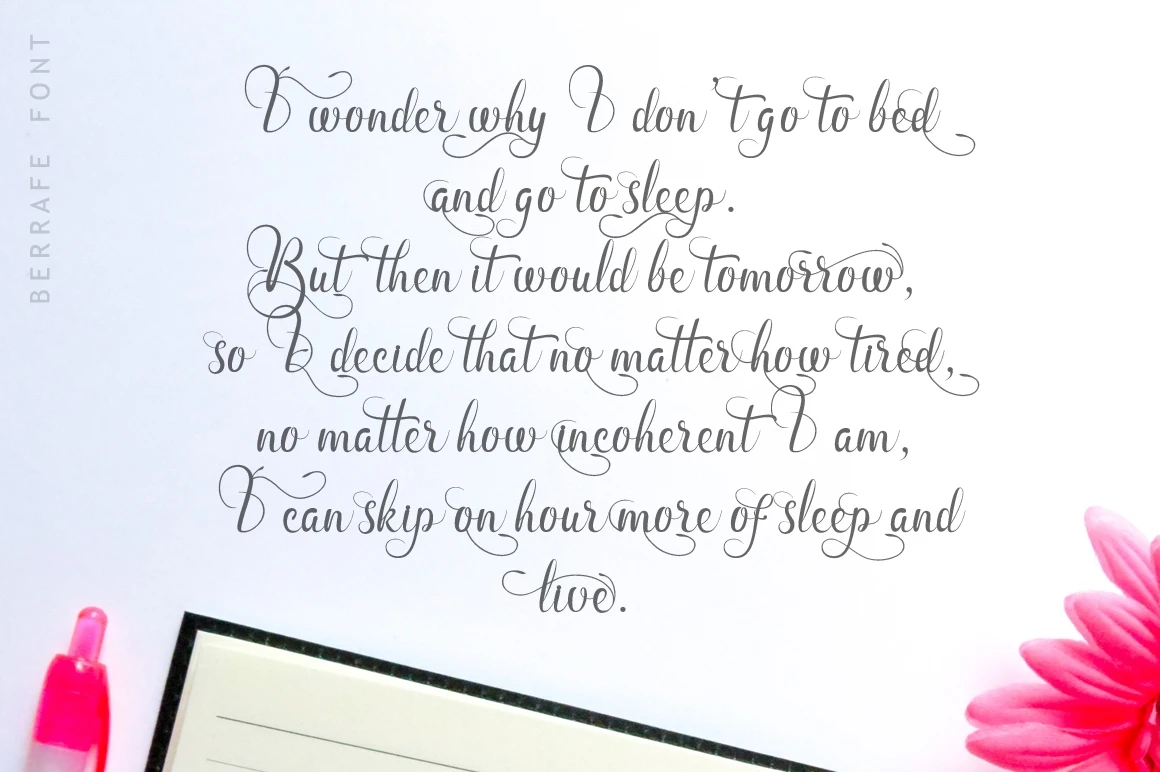 BERRAFE FONT
I wonder why I don't go to bed
and go to sleep.
But then it would be tomorrow,
so I decide that no matter how tired,
no matter how incoherent I am,
I can skip on hour more of sleep and
live.